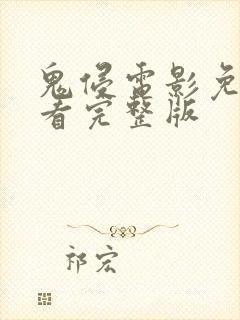 鬼侵电影免
看完整版
祁宏